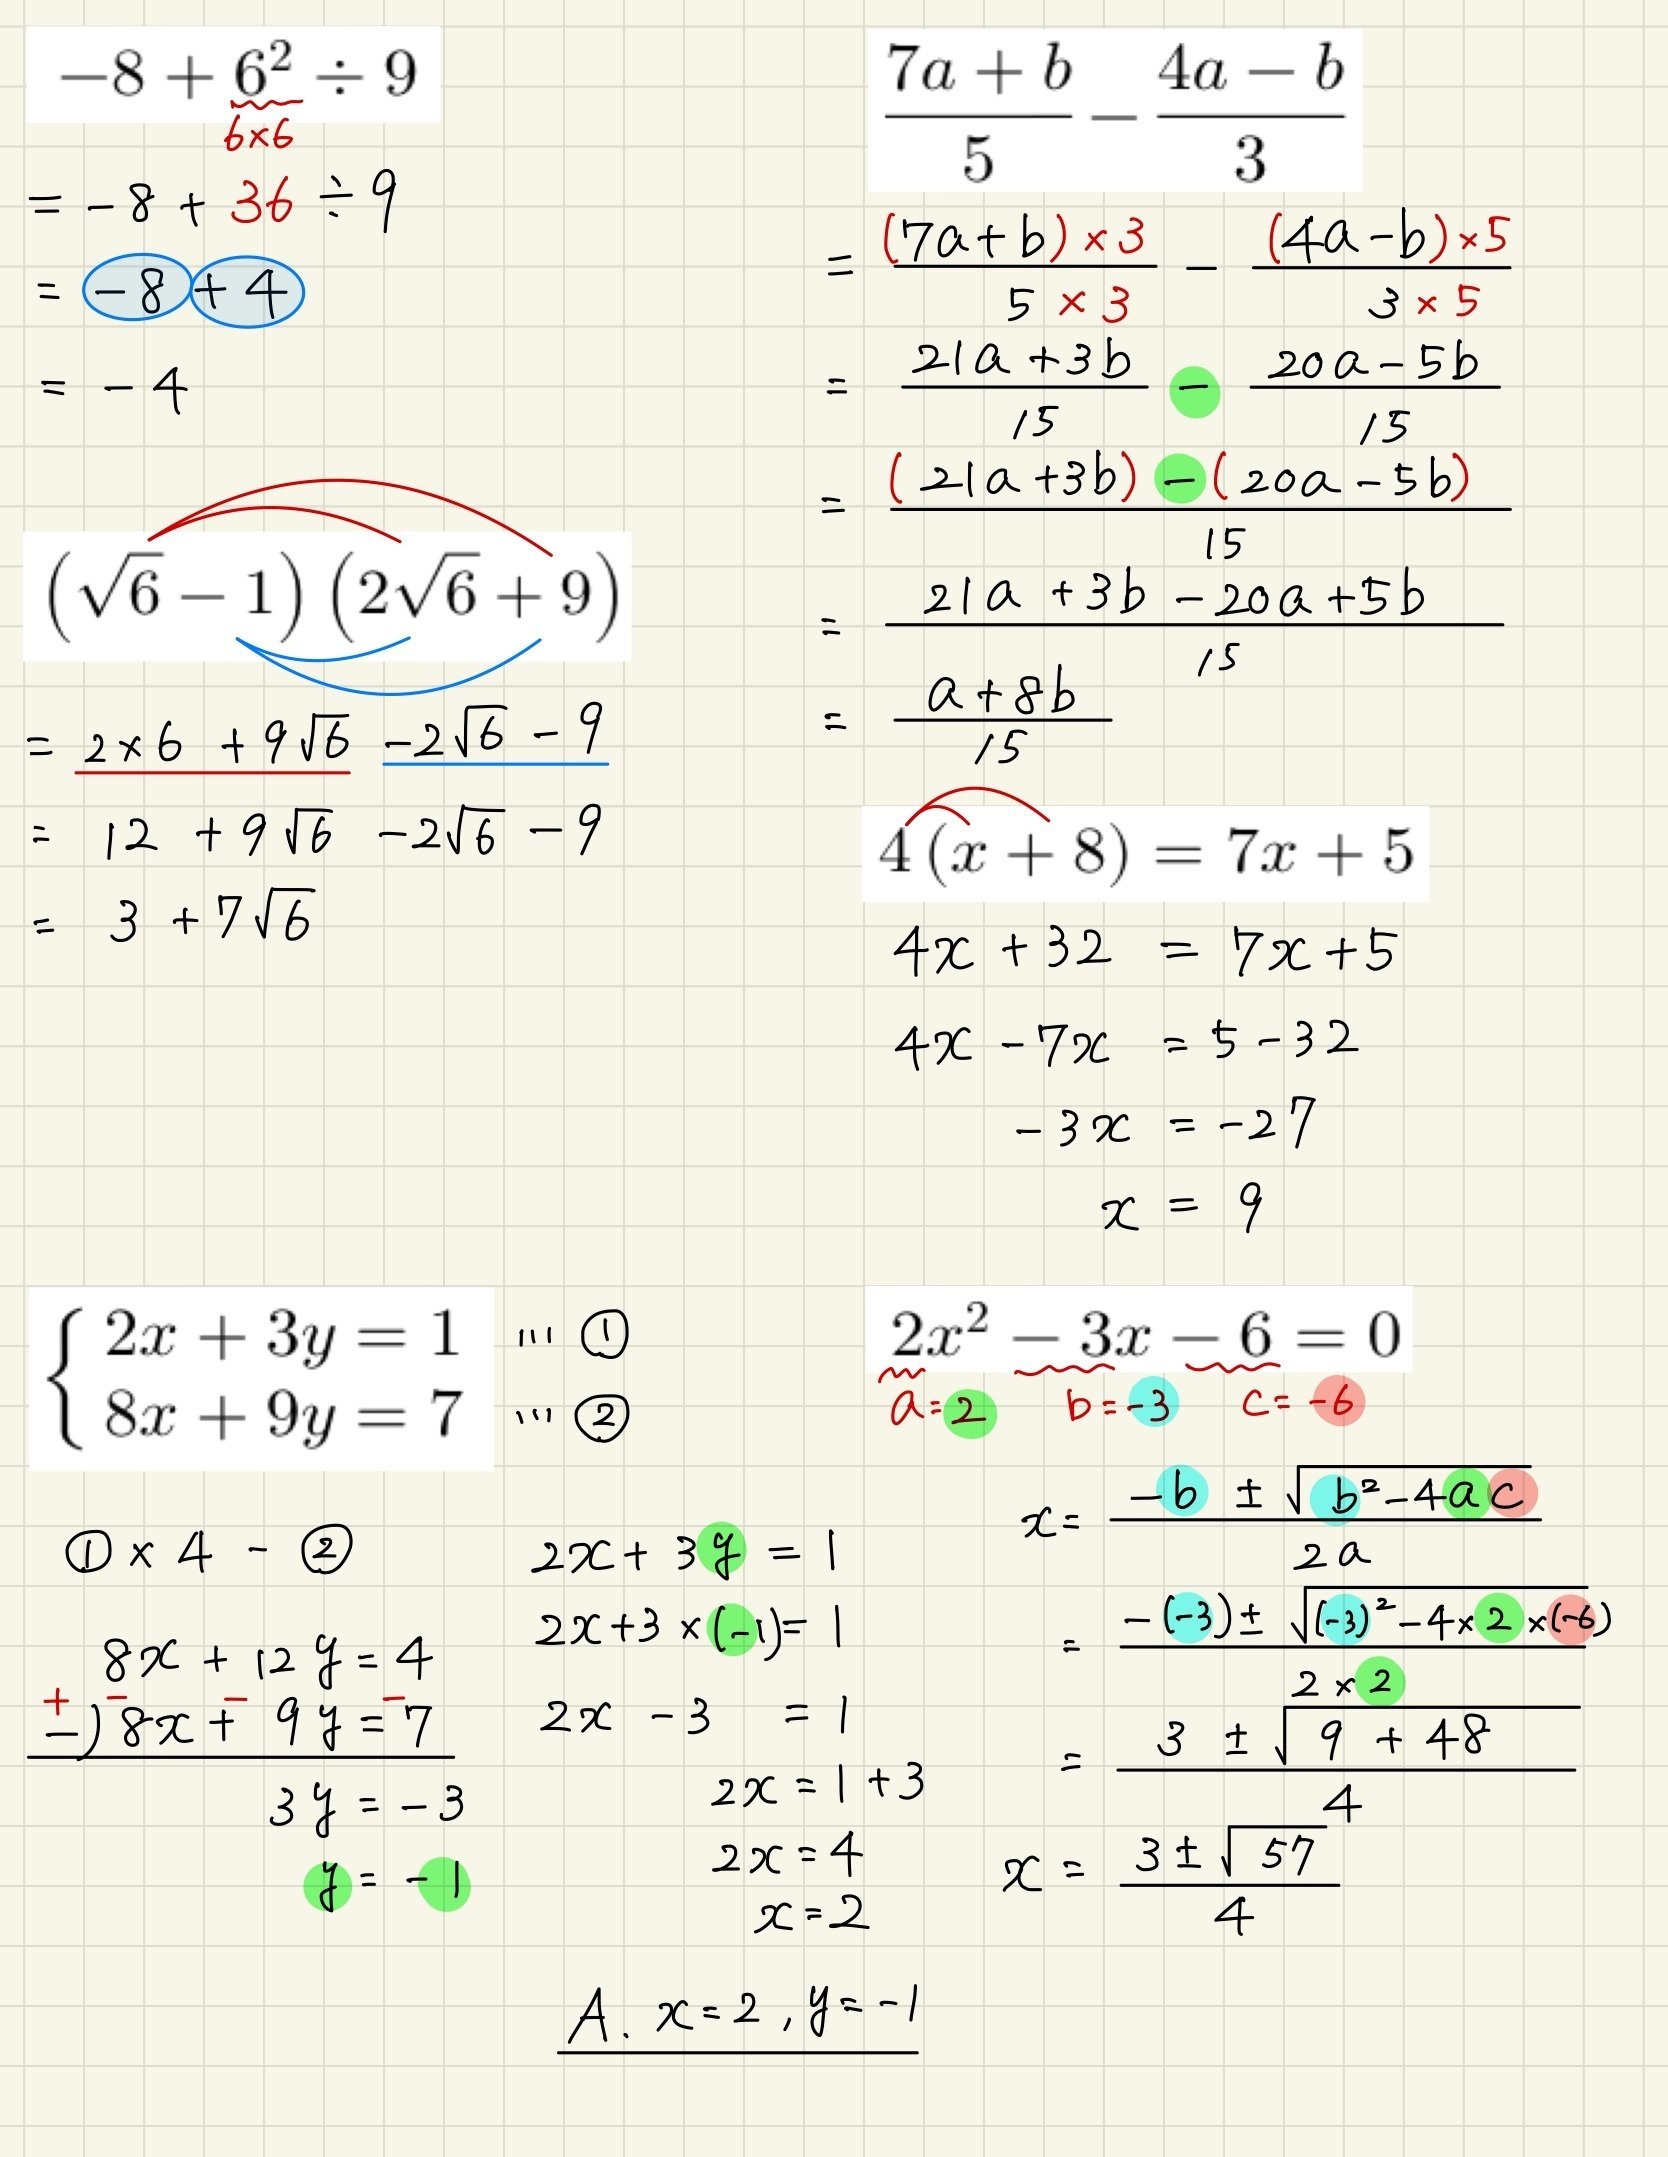 −8 + 6² ÷ 9
6×6
= −8 + 36 ÷ 9
= −8 + 4
= −4
(√6 − 1) (2√6 + 9)
= 2×6 + 9√6 −2√6 − 9
= 12 + 9√6 −2√6 − 9
= 3 + 7√6
(7a + b)/5 − (4a − b)/3
= (7a+b)×3/5×3 − (4a−b)×5/3×5
= 21a+3b/15 − 20a−5b/15
= (21a+3b)−(20a−5b)/15
= 21a+3b−20a+5b/15
= a+8b/15
4(x + 8) = 7x + 5
4x + 32 = 7x+5
4x − 7x = 5−32
−3x = −27
x = 9
{ 2x + 3y = 1 … ①
8x + 9y = 7 … ②
①×4 − ②
8x + 12y = 4
+ − − −
−) 8x + 9y = 7
3y = −3
y = −1
2x + 3y = 1
2x+3×(−1)= 1
2x −3 = 1
2x = 1+3
2x = 4
x = 2
A. x=2, y=−1
2x² − 3x − 6 = 0
a=2 b=−3 c=−6
x= −b ± √b²−4ac/2a
= −(−3)± √(−3)²−4×2×(−6)/2×2
= 3 ± √9 + 48/4
x = 3± √57/4